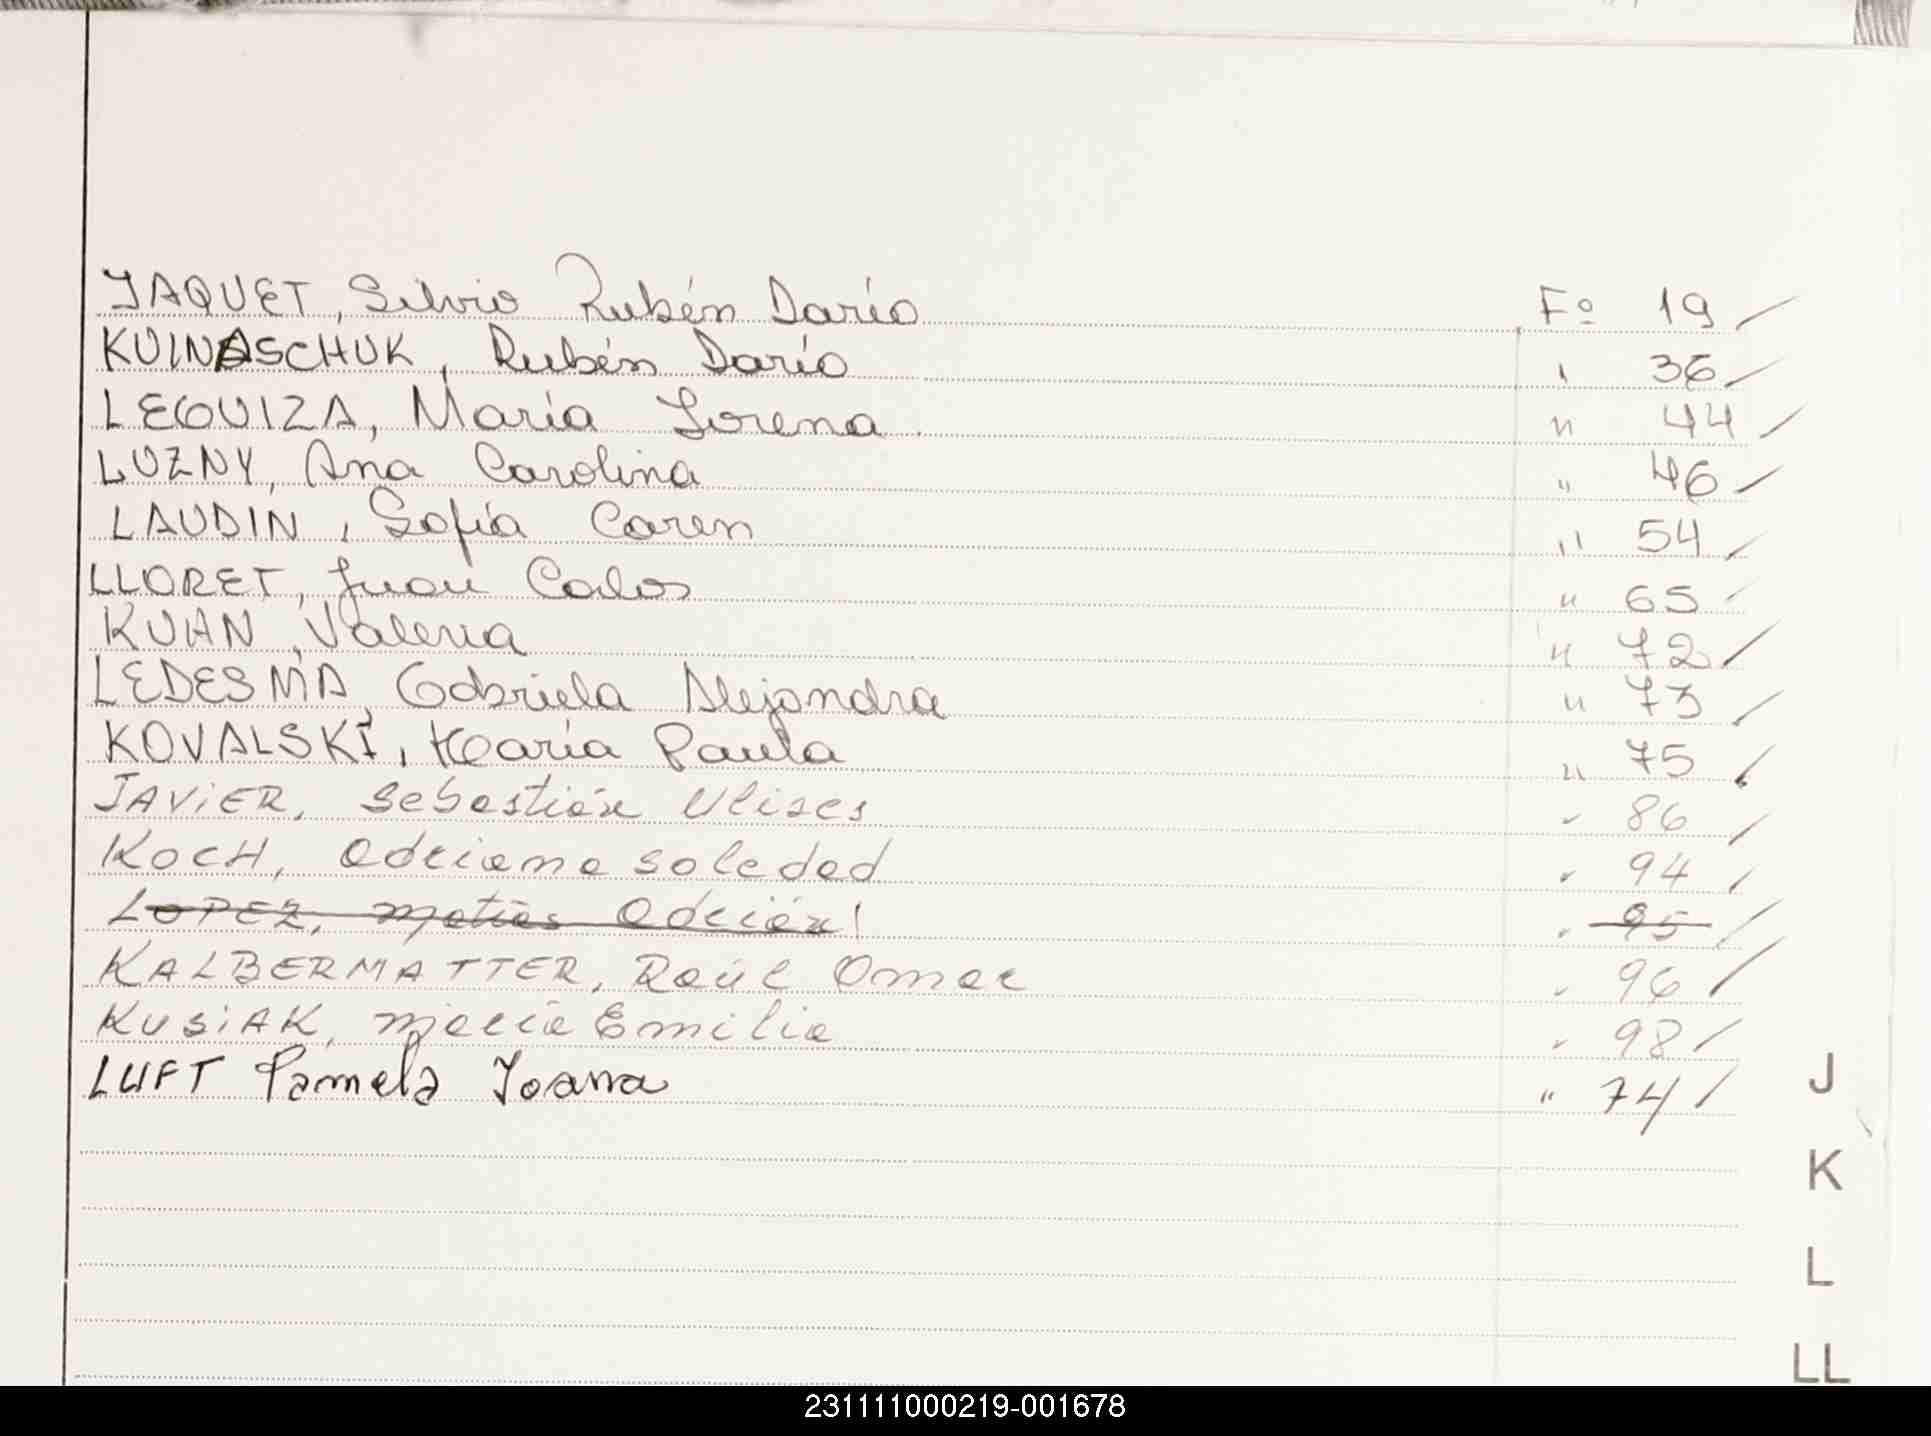 JAQUET, Silvio Rubén Darío Fº 19
KUINASCHUK, Rubén Darío " 36
LEGUIZA, María Lorena " 44
LUZNY, Ana Carolina " 46
LAUDIN, Sofía Caren " 54
LLORET, Juan Carlos " 65
KUAN, Valeria " 72
LEDESMA, Gabriela Alejandra " 73
KOVALSKI, María Paula " 75
JAViER, Sebastián Ulises " 86
KOCH, Adriana Soledad " 94
LOPEZ, Matías Adrián " 95
KALBERMATTER, Raúl Omar " 96
KUSiAK, María Emilia " 98
LUFT Pamela Joana " 74
J
K
L
LL
231111000219-001678